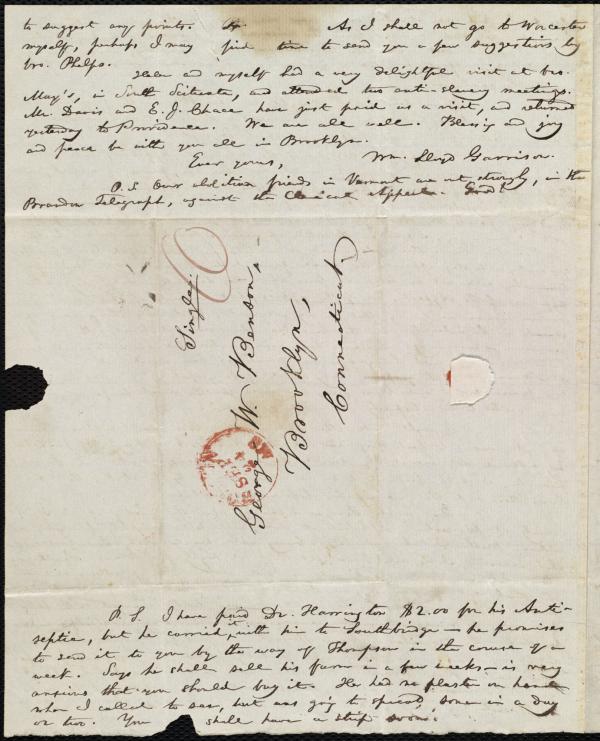 to suggest any points. As I shall not go to Worcester
myself, perhaps I may find time to send you a few suggestions by
bro. Phelps.
Helen and myself had a very delightful visit at bro.
May's, in South Scituate, and attended two anti-slavery meetings.
Mr. Davis and E. J. Chace have just paid us a visit, and returned
yesterday to Providence. We are all well. Blessing and joy
and peace be with you all in Brooklyn.
Ever yours, Wm. Lloyd Garrison.
P. S. Our abolition friends in Vermont are out, strongly, in the
Brandon Telegraph, against the Clerical Appeal. Good!
Single.
George W. Benson,
Brooklyn,
Connecticut.
P. S. I have paid Dr. Harrington $2.00 for his Anti-
septic, but he carried it with him to Southbridge — he promises
to send it to you by the way of Thompson in the course of a
week. Says he shall sell his farm in a few weeks — is very
anxious that you should buy it. He had no plaster on hand
when I called to see, but was going to spread some in a day
or two. You shall have a strip soon.